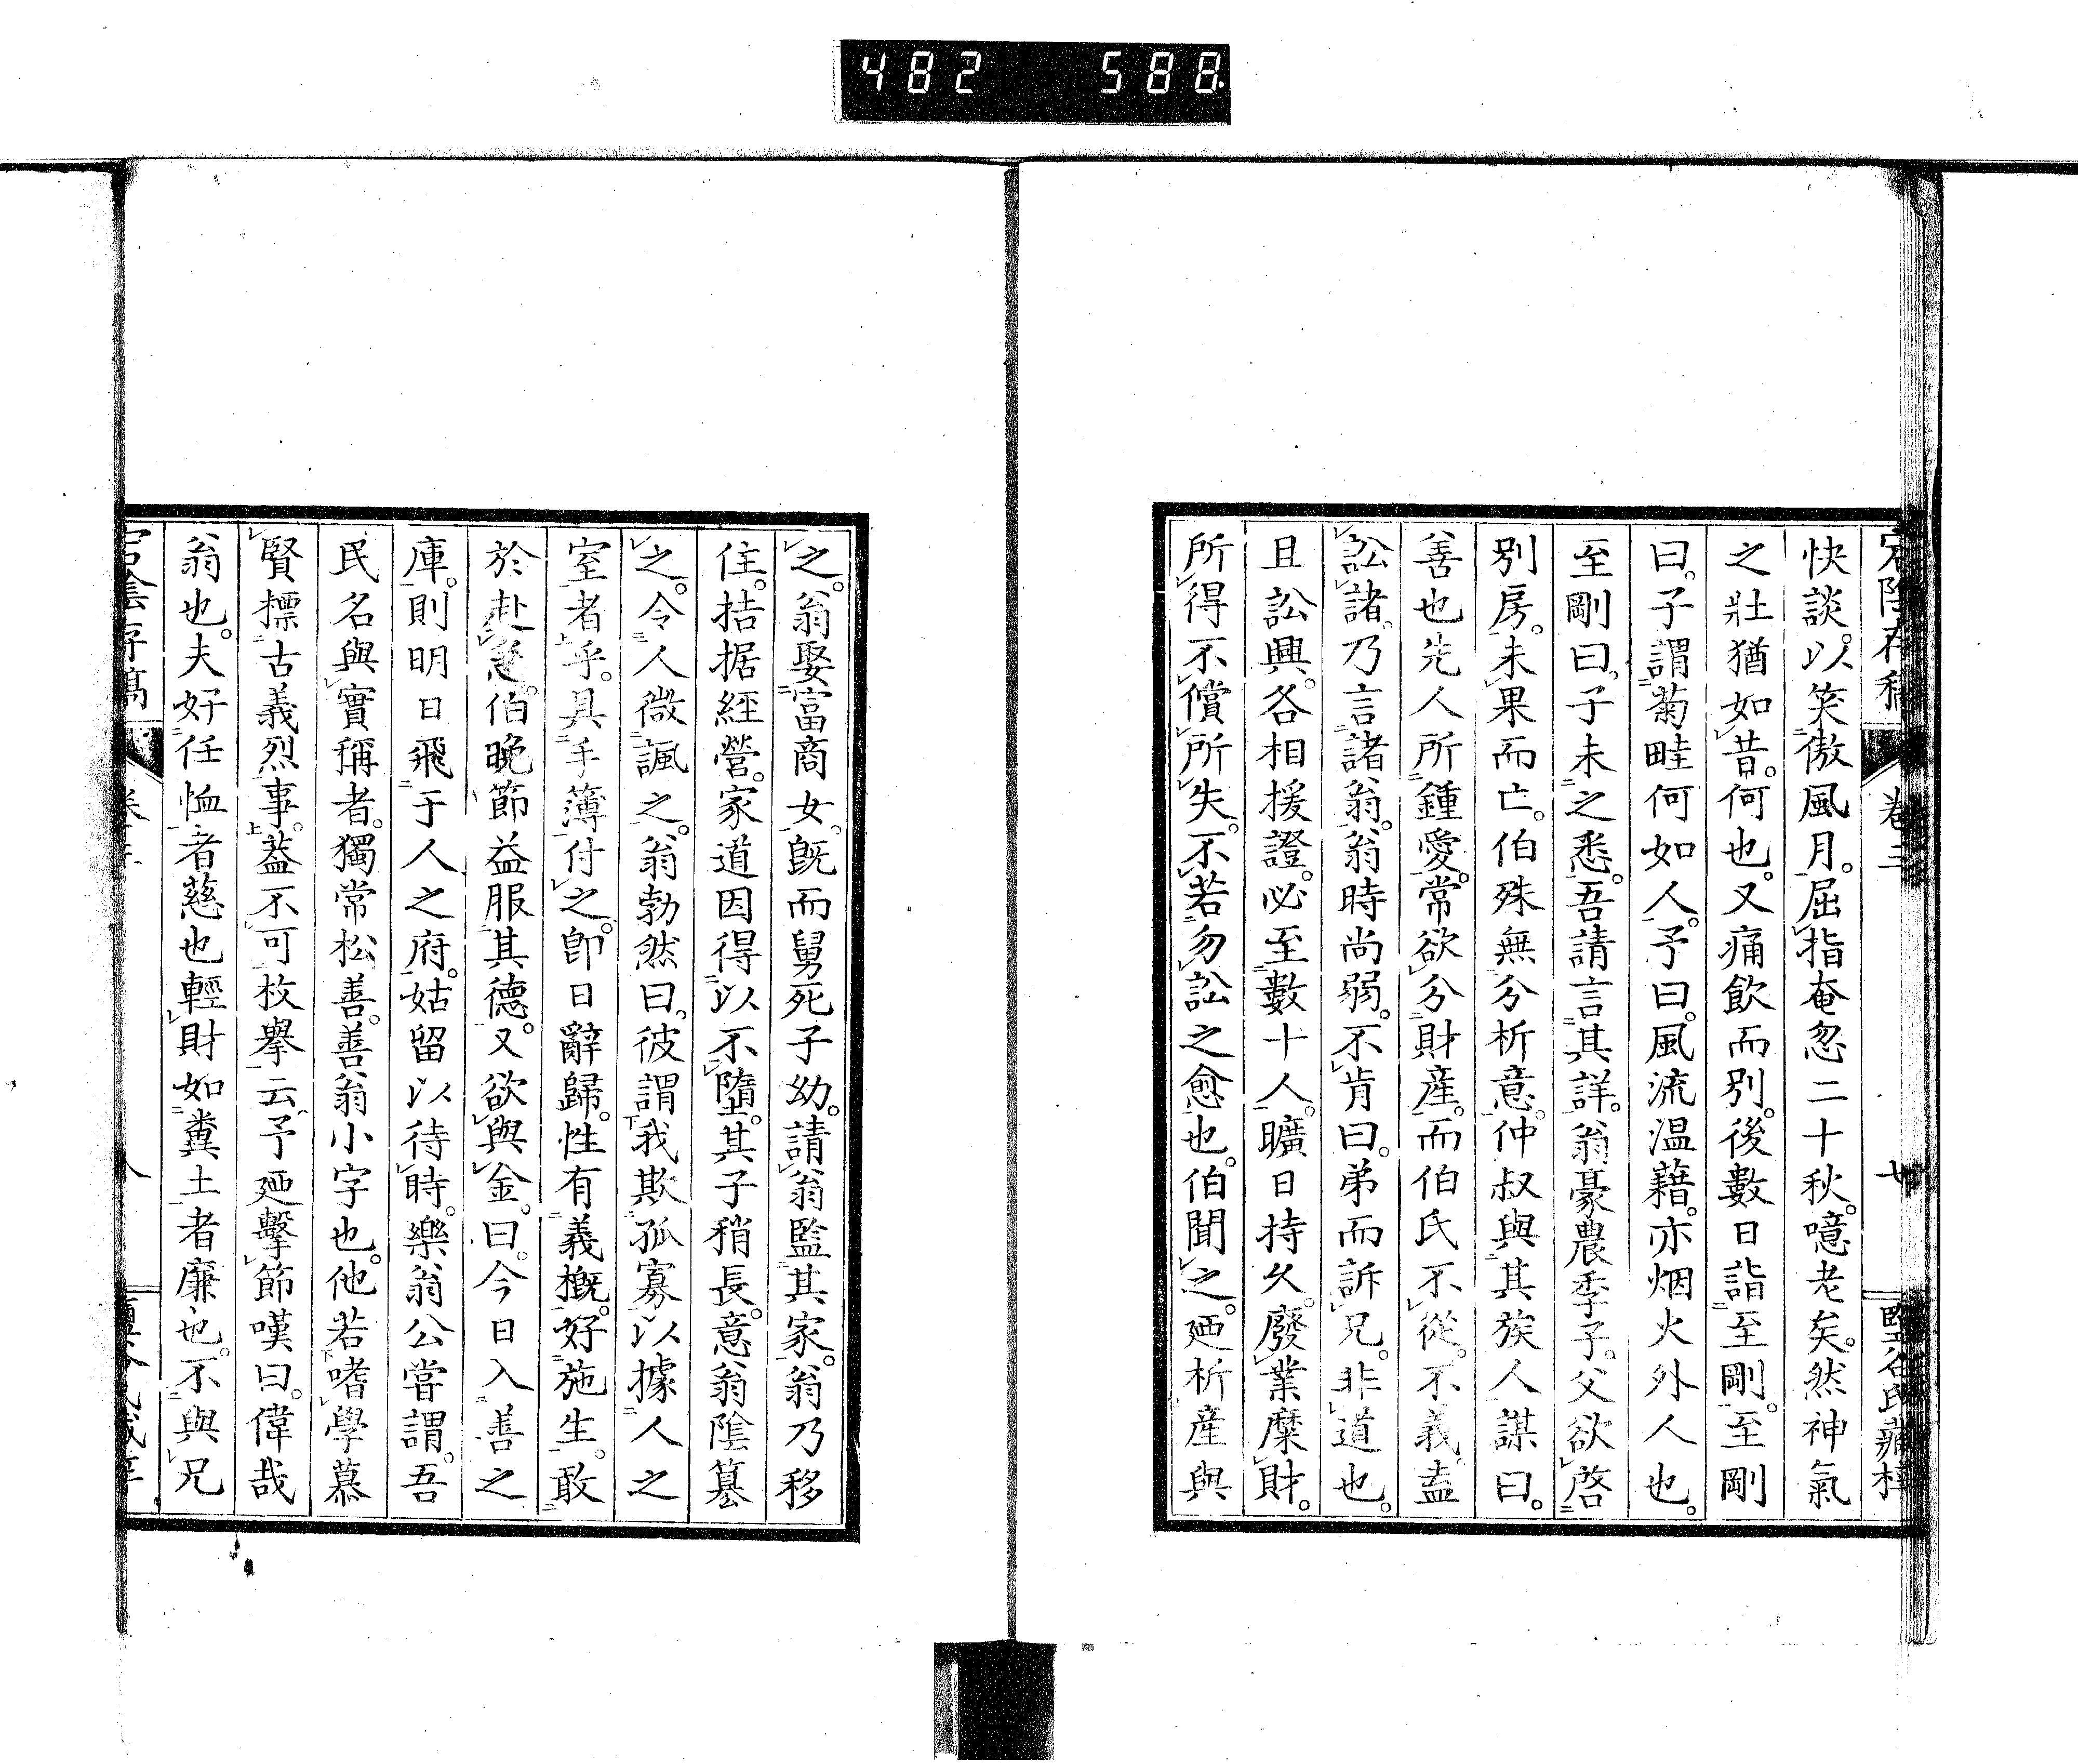 482 588.
快談。以笑傲風月。屈指奄忽二十秋。噫老矣。然神氣
之壯猶如昔。何也。又痛飲而別。後數日詣至剛。至剛
曰。子謂菊畦何如人。予曰。風流温藉。亦烟火外人也。
至剛曰。子未之悉。吾請言其詳。翁豪農季子。父欲啓
別房。未果而亡。伯殊無分析意。仲叔與其族人謀曰。
善也先人所鍾愛。常欲分財産。而伯氏不從。不義。盍
訟諸。乃言諸翁。翁時尚弱。不肯曰。弟而訴兄。非道也。
且訟興。各相援證。必至數十人。曠日持久。廢業糜財。
所得不償所失。不若勿訟之愈也。伯聞之。廼析産與
之。翁娶富商女。既而舅死子幼。請翁監其家。翁乃移
住。拮据經營。家道因得以不墮。其子稍長。意翁陰簒
之。令人微諷之。翁勃然曰。彼謂我欺孤寡以據人之
室者乎。具手簿付之。卽日辭歸。性有義概。好施生。敢
於赴急。伯晩節益服其德。又欲與金。曰。今日入善之
庫。則明日飛于人之府。姑留以待時。樂翁公嘗謂。吾
民名與實稱者。獨常松善。善翁小字也。他若嗜學慕
賢。摽古義烈事。蓋不可枚擧云。予廼擊節嘆曰。偉哉
翁也。夫好任恤者慈也。輕財如糞土者廉也。不與兄
卷三